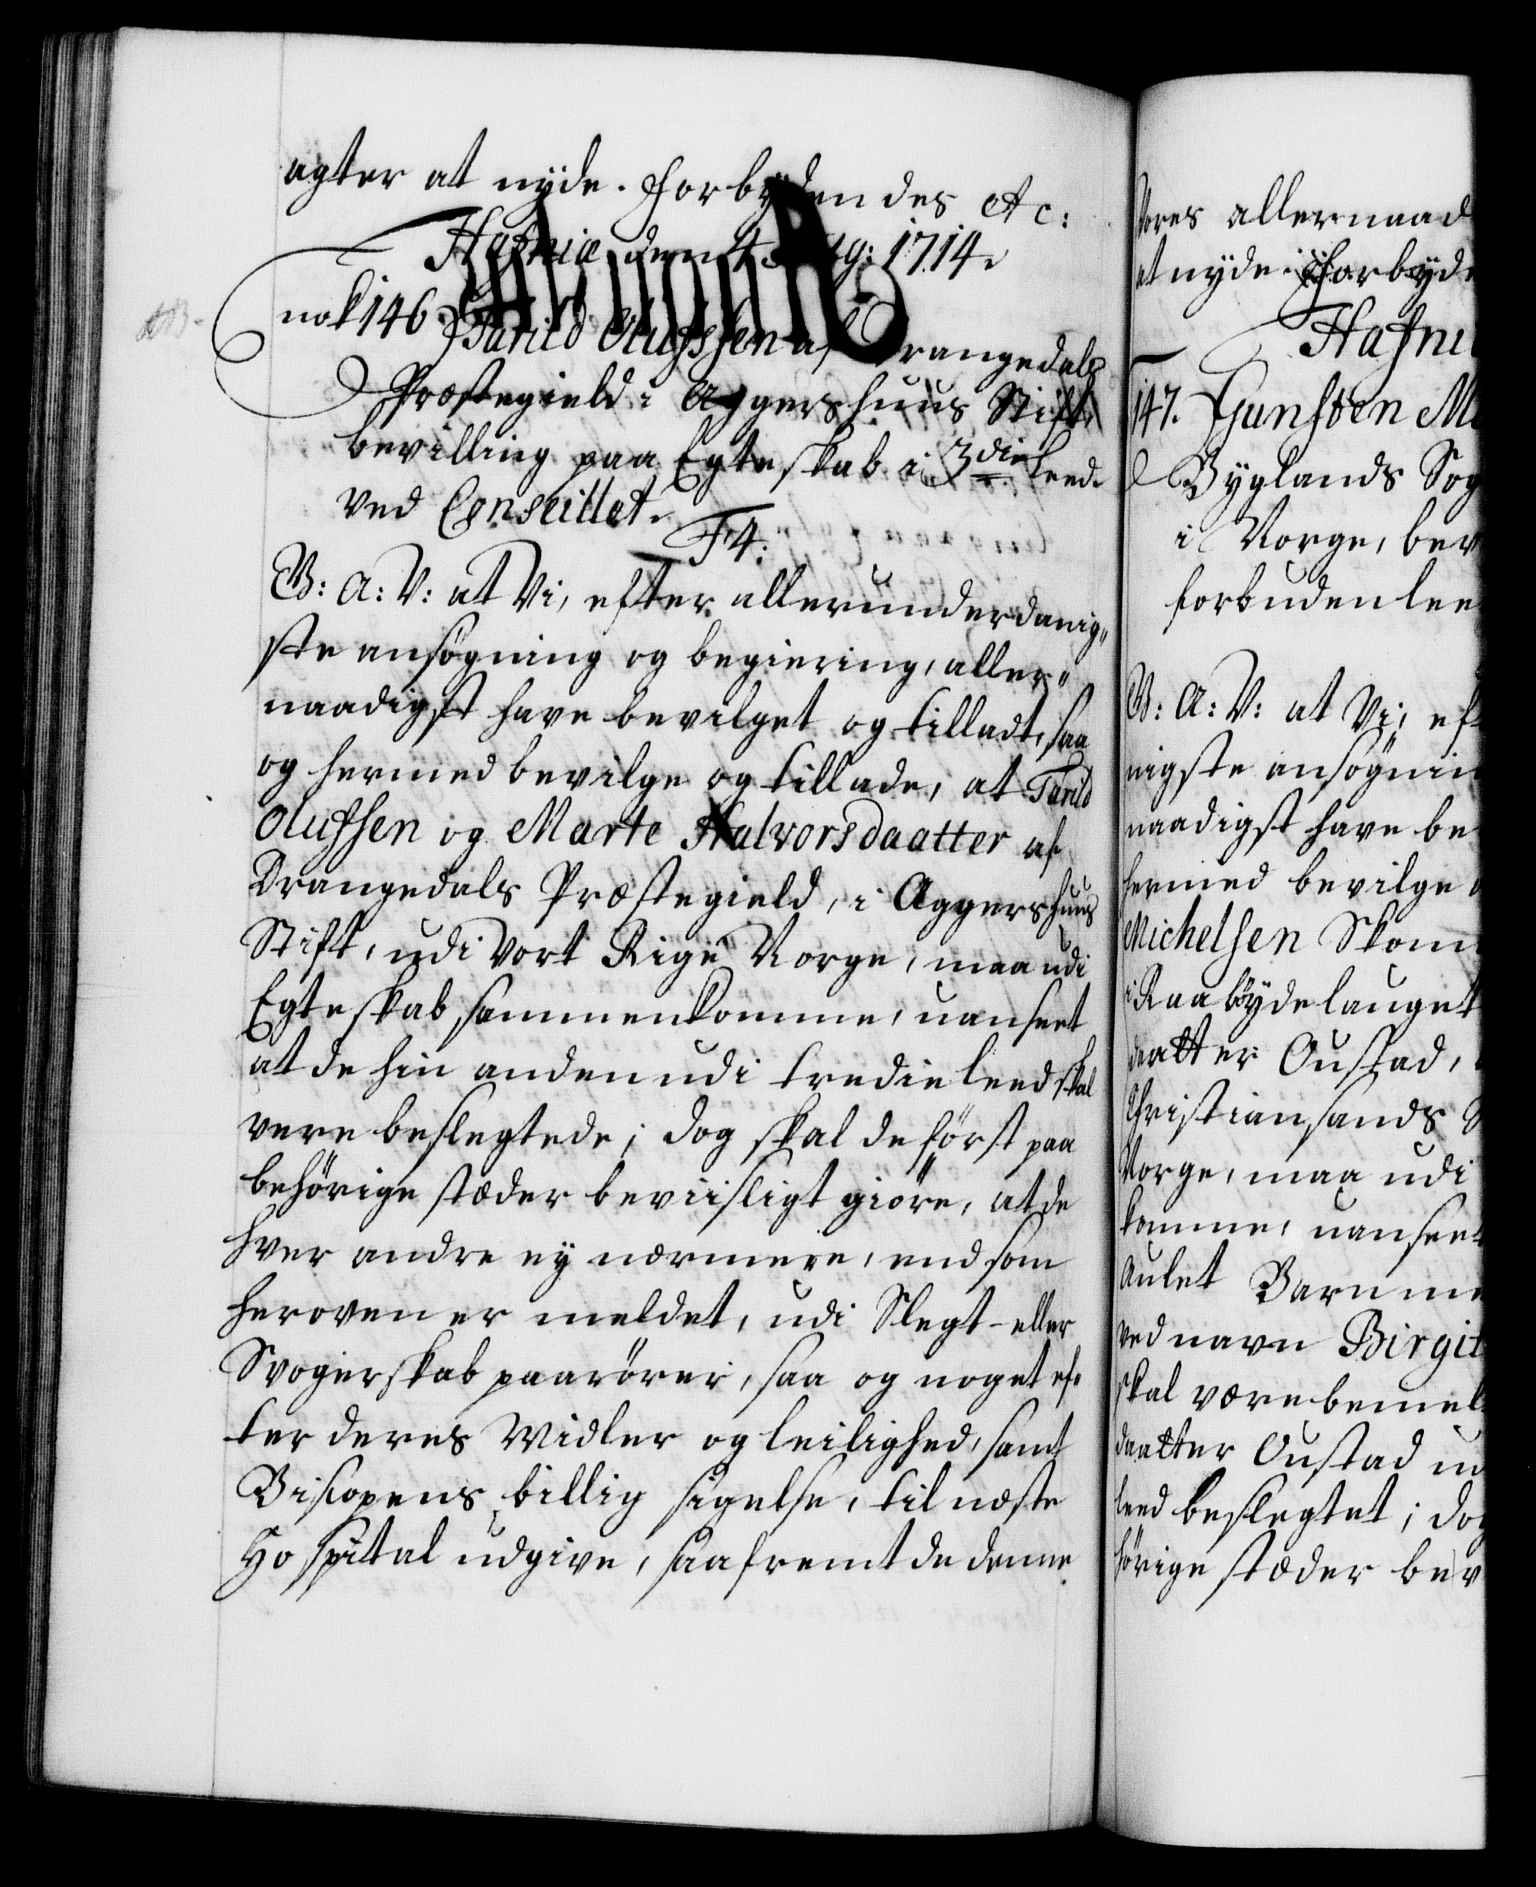 agter at nyde. Forbydendes &c:
Hafniæ den 4 Aug: 1714.
nok 146. Tarild Olufssen af Drangedals
Præstegield i Aggershuus Stift,
bevilling paa Egteskab i 3die leed.
ved Conseillet.
F4:
G: A: V: at Vi, efter allerunderdanig„
ste ansøgning og begiering, aller„
naadigst have bevilget og tilladt, saa
og hermed bevilge og tillade, at Tarild
Olufsen og Marte Halvorsdaatter af
Drangedals Præstegield, i Aggershuus
Stift, udi Vort Rige Norge, maa udi
Egteskab sammenkomme, uanseet
at de hin anden udi tredie leed skal
være beslegtede; dog skal de først paa
behörige stæder beviisligt giöre, at de
hver andre ey nærmere, end som
heroven er meldet, udi Slegt- eller
Svogerskab paarörer, saa og noget ef-
ter deres Midler og leilighed, samt
Biscopens billig sigelse, til næste
Hospital udgive, saafremt de denne
Vores allernaad
at nyde. Forbyde
Hafni
147. Gunsten M
Byglands Sog
i Norge, bev
forbuden lee
G: A: V: at Vi, eft
nigste ansøgnin
naadigst have be
hermed bevilge
Michelsen Skom
i Raaböydelauget
daatter Oustad,
Christiansands S
Norge, maa udi
komme, uanseet
aulet Barn me
ved navn Birgit
skal være bemel
daatter Oustad ud
leed beslegtet; dog
hörige stæder bev